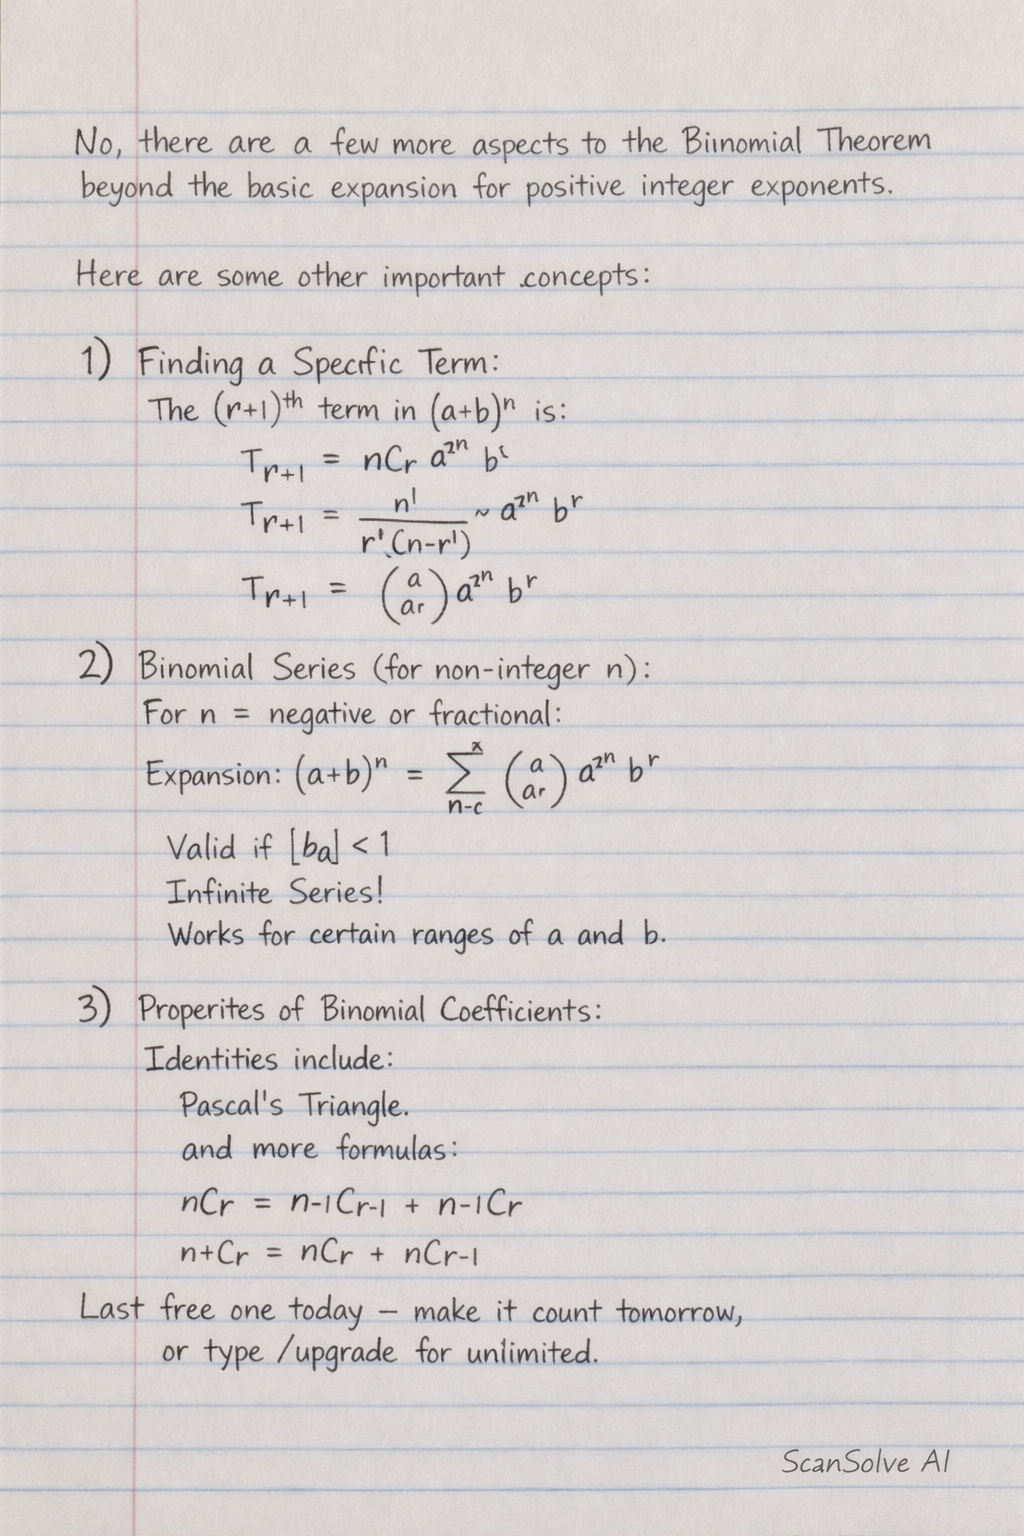 No, there are a few more aspects to the Biinomial Theorem
beyond the basic expansion for positive integer exponents.
Here are some other important concepts:
1) Finding a Specific Term:
The (r+1)ᵗʰ term in (a+b)ⁿ is:
Tᵣ₊₁ = nCr a²ⁿ bᶜ
Tᵣ₊₁ = n! / r!(n-r!) ~ a²ⁿ bʳ
Tᵣ₊₁ = (a ar) a²ⁿ bʳ
2) Binomial Series (for non-integer n):
For n = negative or fractional:
Expansion: (a+b)ⁿ = ∑ˣ n-c (a ar) a²ⁿ bʳ
Valid if [ba] < 1
Infinite Series!
Works for certain ranges of a and b.
3) Properites of Binomial Coefficients:
Identities include:
Pascal's Triangle.
and more formulas:
nCr = n-1Cr-1 + n-1Cr
n+Cr = nCr + nCr-1
Last free one today – make it count tomorrow,
or type /upgrade for unlimited.
ScanSolve AI